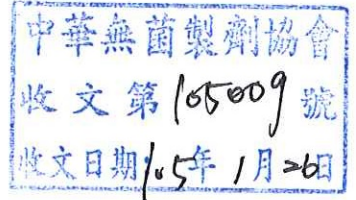 中華無菌製劑協會
收文第105009號
收文日期105年1月26日